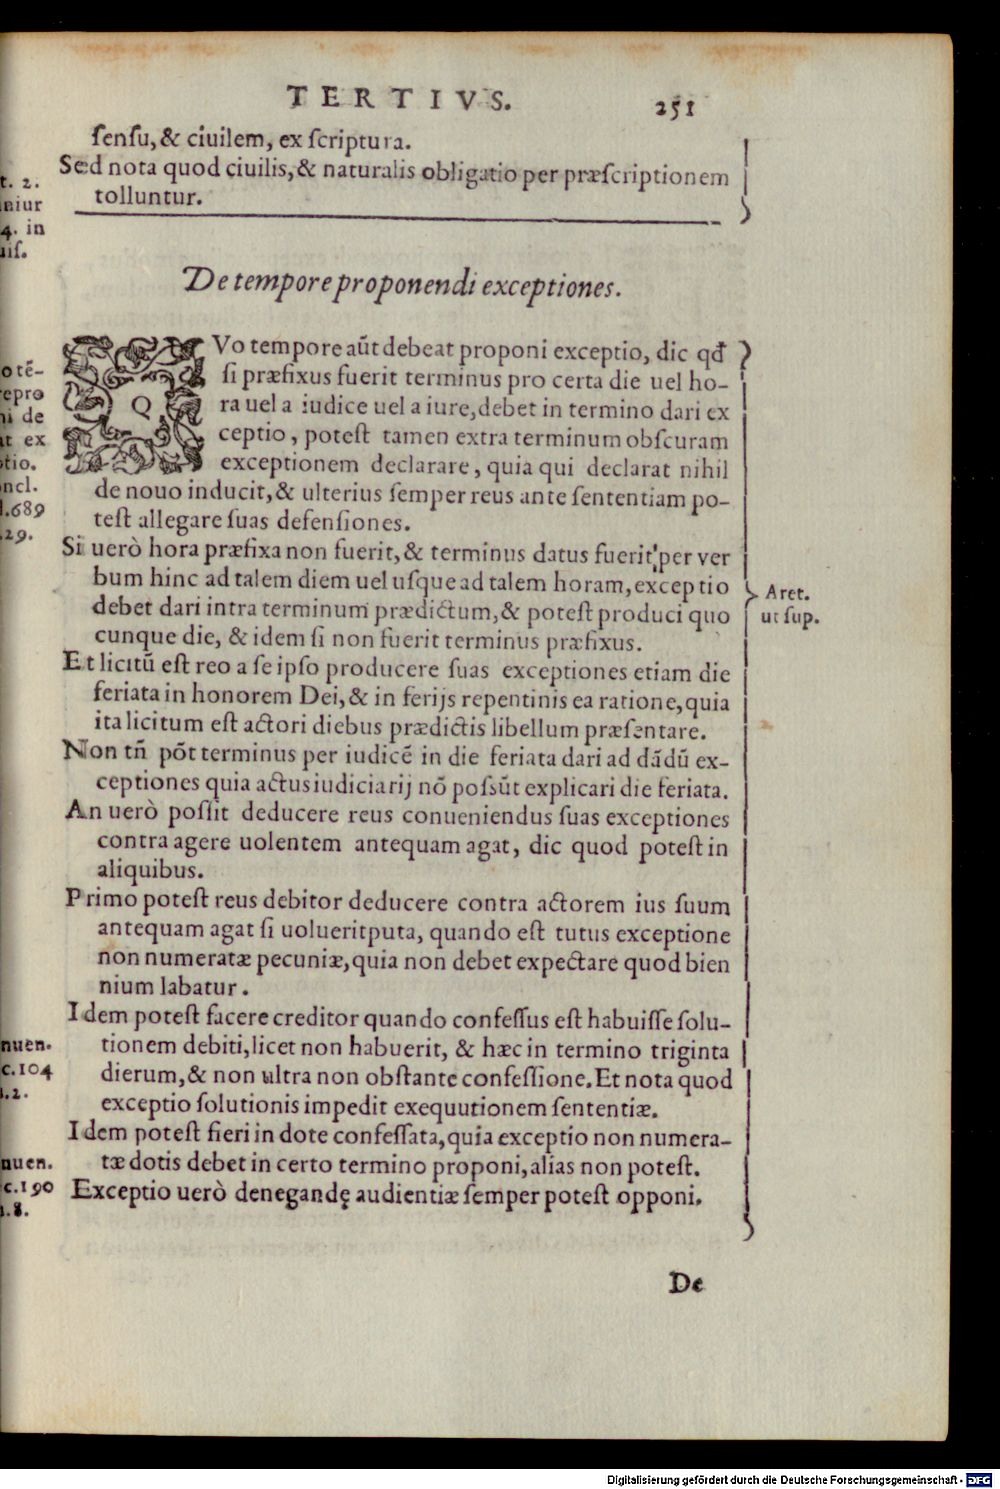 TERTIVS. 251
sensu, & ciuilem, ex scriptura.
Sed nota quod ciuilis, & naturalis obligatio per præscriptionem
tolluntur.
t. 2.
niur
4. in
uis.
De tempore proponendi exceptiones.
QVo tempore aũt debeat proponi exceptio, dic qđ
si præfixus fuerit terminus pro certa die uel ho-
ra uel a iudice uel a iure, debet in termino dari ex
ceptio, potest tamen extra terminum obscuram
exceptionem declarare, quia qui declarat nihil
de nouo inducit, & ulterius semper reus ante sententiam po-
test allegare suas defensiones.
o tẽ-
repro
ni de
at ex
ptio.
oncl.
l.689
.29.
Si uerò hora præfixa non fuerit, & terminus datus fuerit per ver
bum hinc ad talem diem uel usque ad talem horam, exceptio
debet dari intra terminum prædictum, & potest produci quo
cunque die, & idem si non fuerit terminus præfixus.
Aret.
ut sup.
Et licitũ est reo a se ipso producere suas exceptiones etiam die
feriata in honorem Dei, & in ferijs repentinis ea ratione, quia
ita licitum est actori diebus prædictis libellum præsentare.
Non tñ põt terminus per iudicẽ in die feriata dari ad dãdũ ex-
ceptiones quia actus iudiciarij nõ possũt explicari die feriata.
An uerò possit deducere reus conueniendus suas exceptiones
contra agere uolentem antequam agat, dic quod potest in
aliquibus.
Primo potest reus debitor deducere contra actorem ius suum
antequam agat si uolueritputa, quando est tutus exceptione
non numeratæ pecuniæ, quia non debet expectare quod bien
nium labatur.
Idem potest facere creditor quando confessus est habuisse solu-
tionem debiti, licet non habuerit, & hæc in termino triginta
dierum, & non ultra non obstante confessione. Et nota quod
exceptio solutionis impedit exequutionem sententiæ.
nuen.
c.104
.2.
Idem potest fieri in dote confessata, quia exceptio non numera-
tæ dotis debet in certo termino proponi, alias non potest.
Exceptio uerò denegandę audientiæ semper potest opponi.
nuen.
c.190
.8.
De
Digitalisierung gefördert durch die Deutsche Forschungsgemeinschaft - DFG